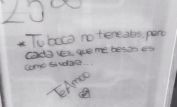 25
* Tu boca no tiene alas, pero
cada vez que me besas es
como si volara...
Te Amoo